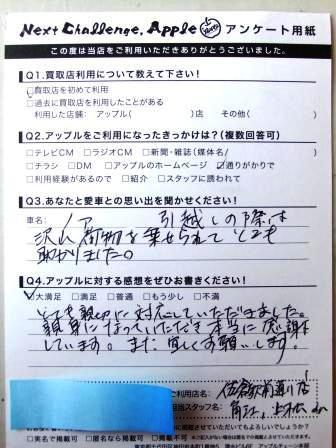 Next Challenge, Apple アンケート用紙
この度は当店をご利用いただきありがとうございました。
Q1.買取店利用について教えて下さい!
□買取店を初めて利用
□過去に買取店を利用したことがある
利用した店舗: アップル( )店 その他( )
Q2.アップルをご利用になったきっかけは?(複数回答可)
□テレビCM □ラジオCM □新聞・雑誌(媒体名/ )
□チラシ □DM □アップルのホームページ □通りがかりで
□利用経験があるので □紹介 □スタッフに誘われて
Q3.あなたと愛車との思い出を聞かせください!
車名: ノア 引越しの際は
沢山荷物を乗せられてとても
助かりました。
Q4.アップルに対する感想をぜひお書きください!
□大満足 □満足 □普通 □もう少し □不満
とても親切に対応していただきました。
親身になっていただき本当に感謝
しています。また宜しくお願いします。
ご利用店名: 佐倉駅前通り店
担当スタッフ名:
に掲載させていただいてもよろしいでしょうか?
□実名で掲載可 □匿名なら掲載可 □掲載不可